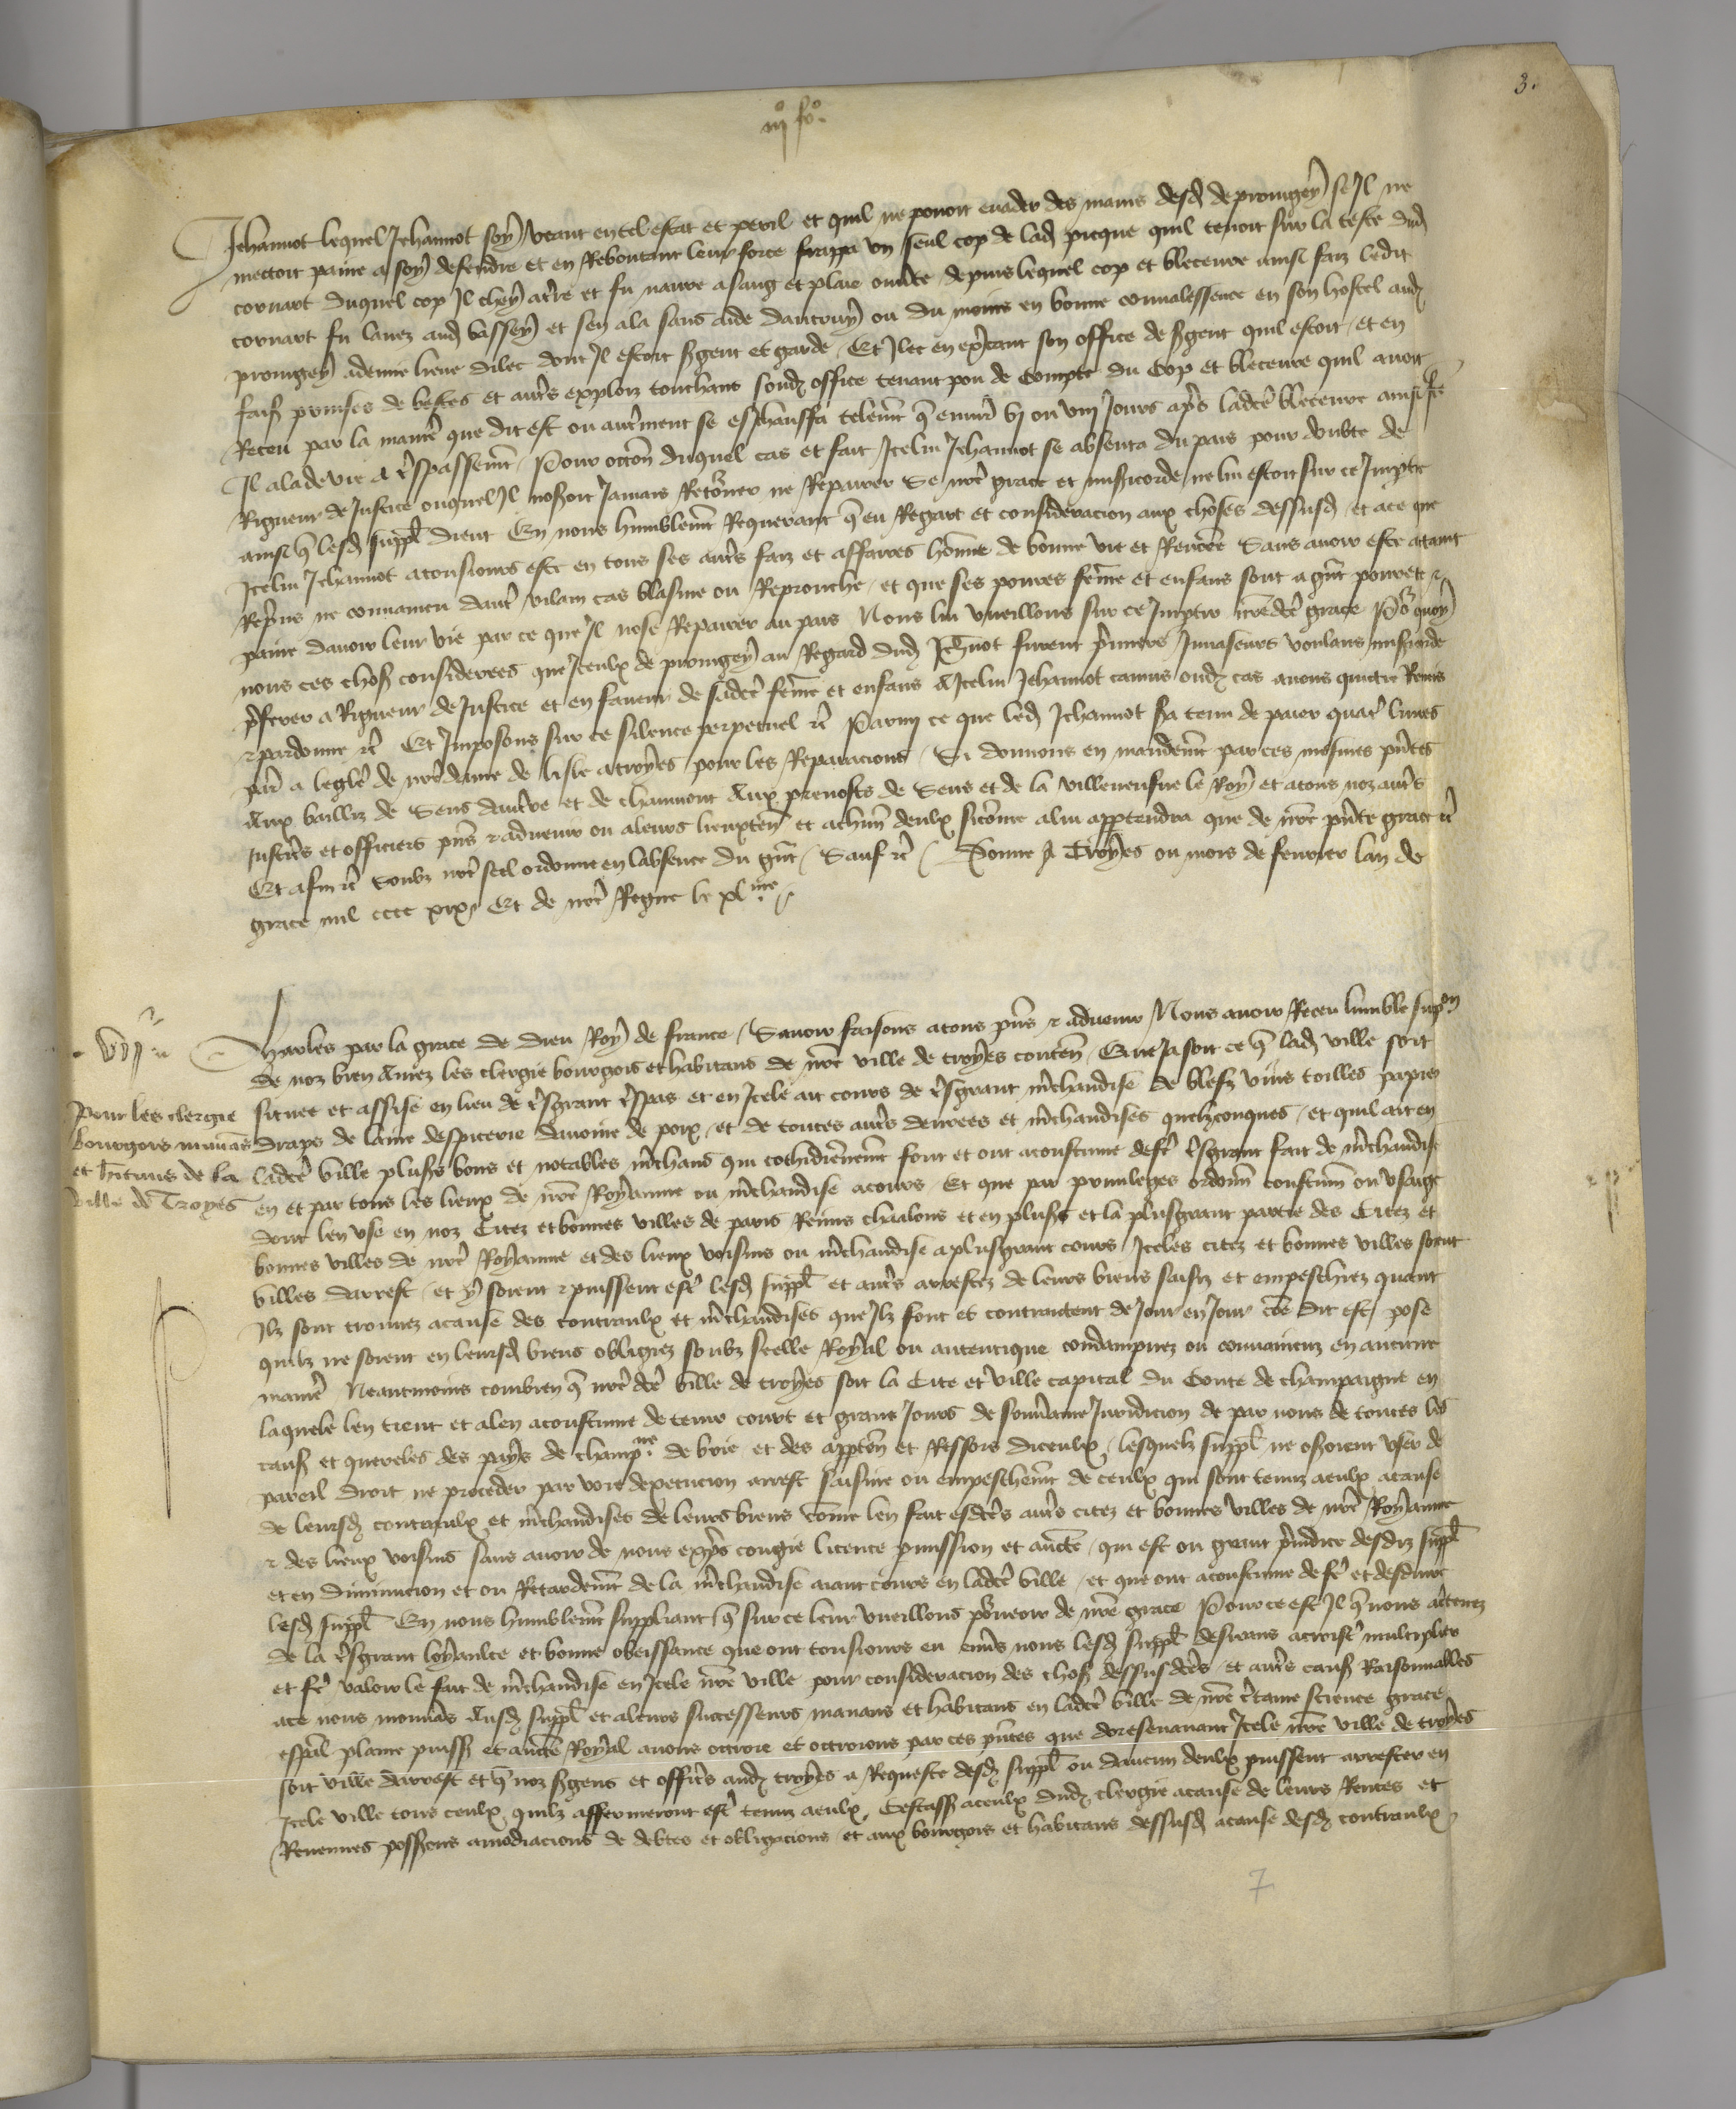 3.
iij fo.
Jehannot lequel Jehannot soy veant en tel estat et peril et quil ne pouoit euader des mains desd de prouigny se Il ne
mectoit paine a soy defendre et en Reboutant leur force frappa vn seul cop de lad picque quil tenoit sur la teste dud
cornart duquel cop Il chey a tre et fu naure a sang et plaie ouuerte depuis lequel cop et bleceure ainsi faiz ledit
cornart fu lauez aud bassey et sen ala sans aide dautruy ou du moins en bonne conualessence en son hostel aud
prouigny a demie lieue dilec dont Il estoit sgent et garde Et Ilec en exercant son office de sgent quil estoit et en
fais prinses de bestes et autres exploiz touchans sond office tenant pou de compte du cop et bleceure quil auoit
Receu par la maniere que dit est ou autrement se eschauffa telemt q enuiron vj ou viij Jours apres ladce bleceure ainsi fte
Il ala de vie a tspassemt Pour occon duquel cas et fait Icelui Jehannot se absenta du pais pour doubte de
Rigueur de Justice ouquel Il noseroit Jamais Retorner ne Repairer Se nre grace et misericorde ne lui estoit sur ce Imptie
ainsi q lesd suppl dient En nous humblemt Requerant q eu Regart et consideracion aux choses dessusd et a ce que
Icelui Jehannot a tousiours este en tous ses autres faiz et affaires homme de bonne vie et Renomee Sans auoir este attaint
Reprins ne conuaincu dautre vilain cas blasme ou Reprouche et que ses poures femme et enfans sont a grant pourete et
paine dauoir leur vie par ce que Il nose Repairer au pais Nous lui vueillons sur ce Impartir nredce grace Por quoy
nous ces choses considerees que Iceulx de prouigny au Regard dud Jehnot furent premiers Inuaseurs voulans misericorde
preferer a Rigueur de Justice et en faueur de sadce femme et enfans A Icelui Jehannot camus oud cas auons quicte Remis
et pardonne etc Et Imposons sur ce silence perpetuel etc Parmi ce que led Jehannot sera tenu de paier quatre liures
par a leglise de nre dame de lisle a troyes pour les Reparacions Si donnons en mandemt par ces mesmes pntes
Aux bailliz de Sens daucerre et de chaumont Aux preuosts de Sens et de la villeneufue le Roy et a tous noz autres
Justiciers et officiers pns et aduenir ou a leurs lieuxten et a chun deulx sicomme a lui appartendra que de nre pnte grace etc
Et afin etc Soubz nre seel ordonne en labsence du grant Sauf etc Donne A Troyes ou mois de feurier lan de
grace mil cccc xix Et de nre Regne le xl me
vij
Charles par la grace de dieu Roy de france Sauoir faisons a tous pns et aduenir Nous auoir Receu humble supon
de noz bien Amez les clergie bourgois et habitans de nre ville de troyes conten Que Ja soit ce q lad ville soit
Pour les clergie
bourgois manans
et hitans de la
ville de Troyes
situee et assise en lieu de tsgrant tspas et en Icele ait cours de tsgrant mchandise de blefz vins toilles papier
draps de laine despicerie dauoine de poix et de toutes autres denrees et mchandises quelzconques et quil ait en
ladce ville pluss bons et notables mchans qui cothidiennemt font et ont acoustume de fe tsgrant fait de mchandise
en et par tous les lieux de nre Royaume ou mchandise a cours Et que par priuileges ordonn coustum ou vsaige
dont len vse en noz Citez et bonnes villes de paris Reims chaalons et en pluss et la plusgrant partie des Citez et
bonnes villes de nre Royaume et des lieux voisins ou mchandise a plusgrant cours Iceles citez et bonnes villes soient
villes darrest et y soient et puissent este lesd suppl et autres arrestez de leurs biens saisiz et empeschiez quant
Ilz sont trouuez a cause des contraulx et mchandises que Ilz font et contraictent de Jour en Jour coe dit est pose
quilz ne soient en leursd biens obligiez soubz seelle Royal ou autentique condampnez ou conuaincuz en aucune
maniere Neantmoins combien q nre dce ville de troyes soit la Cite et ville capital du Conte de champaigne en
laquele len tient et a len acoustume de tenir court et grans Jours de souueraine Juridicion de par nous de toutes les
causes et quereles des pays de champne de brie et des apparten et Ressors diceulx lesquelz suppl ne oseroient vser de
pareil droit ne proceder par voie dexecucion arrest saisine ou empeschemt de ceulx qui sont tenuz a eulx a cause
de leursd contraulx et mchandises de leurs biens comme len fait esdces autres citez et bonnes villes de nre Royaume
et des lieux voisins sans auoir de nous expres congie licence pmission et aucte qui est ou grant preiudice desdiz suppl
et en diminucion et ou Retardemt de la mchandise aiant cours en ladce ville et que ont acoustume de fe et desduire
lesd suppl En nous humblemt suppliant q sur ce leur vueillons pourueoir de nre grace Pour ce est Il q nous attenez
de la tsgrant loyaulte et bonne obeissance que ont tousiours eu enuers nous lesd suppl desirans acroistre multiplier
et fe valoir le fait de mchandise en Icele nre ville pour consideracion des choses dessusdces et autres causes Raisonnables
a ce nous mouuans Ausd suppl et a leurs successeurs manans et habitans en ladce ville de nre ctaine science grace
espal plaine puiss et aucte Royal auons octroie et octroions par ces pntes que doresenauant Icele nre ville de troyes
soit ville darrest et q noz sgens et officiers aud troyes a Requeste desd suppl ou daucun deulx puissent arrester en
Icele ville tous ceulx quilz affermeront este tenuz a eulx Cestass a ceulx dud clergie a cause de leurs Rentes et
Reuenues possess amodiacions de debtes et obligacions et aux bourgois et habitans dessusd a cause desd contraulx
7